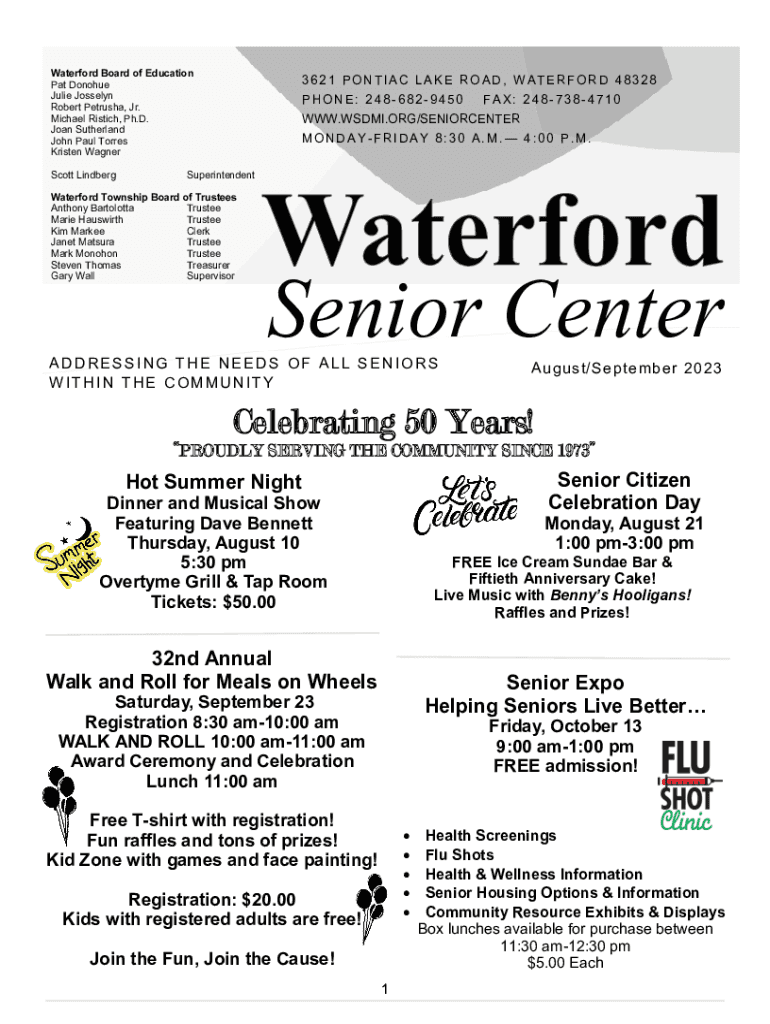 Waterford Board of Education
Pat Donohue
Julie Josselyn
Robert Petrusha, Jr.
Michael Ristich, Ph.D.
Joan Sutherland
John Paul Torres
Kristen Wagner
Scott Lindberg Superintendent
Waterford Township Board of Trustees
Anthony Bartolotta Trustee
Marie Hauswirth Trustee
Kim Markee Clerk
Janet Matsura Trustee
Mark Monohon Trustee
Steven Thomas Treasurer
Gary Wall Supervisor
3621 PONTIAC LAKE ROAD, WATERFORD 48328
PHONE: 248-682-9450 FAX: 248-738-4710
WWW.WSDMI.ORG/SENIORCENTER
MONDAY-FRIDAY 8:30 A.M.— 4:00 P.M.
Waterford
Senior Center
ADDRESSING THE NEEDS OF ALL SENIORS
WITHIN THE COMMUNITY
August/September 2023
Celebrating 50 Years!
“PROUDLY SERVING THE COMMUNITY SINCE 1973”
Hot Summer Night
Dinner and Musical Show
Featuring Dave Bennett
Thursday, August 10
5:30 pm
Overtyme Grill & Tap Room
Tickets: $50.00
Summer
Night
Let's
Celebrate
Senior Citizen
Celebration Day
Monday, August 21
1:00 pm-3:00 pm
FREE Ice Cream Sundae Bar &
Fiftieth Anniversary Cake!
Live Music with Benny’s Hooligans!
Raffles and Prizes!
32nd Annual
Walk and Roll for Meals on Wheels
Saturday, September 23
Registration 8:30 am-10:00 am
WALK AND ROLL 10:00 am-11:00 am
Award Ceremony and Celebration
Lunch 11:00 am
Free T-shirt with registration!
Fun raffles and tons of prizes!
Kid Zone with games and face painting!
Registration: $20.00
Kids with registered adults are free!
Join the Fun, Join the Cause!
Senior Expo
Helping Seniors Live Better…
Friday, October 13
9:00 am-1:00 pm
FREE admission!
FLU
SHOT
Clinic
• Health Screenings
• Flu Shots
• Health & Wellness Information
• Senior Housing Options & Information
• Community Resource Exhibits & Displays
Box lunches available for purchase between
11:30 am-12:30 pm
$5.00 Each
1